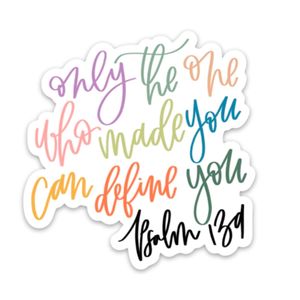 only the one
who made you
can define you
Psalm 139